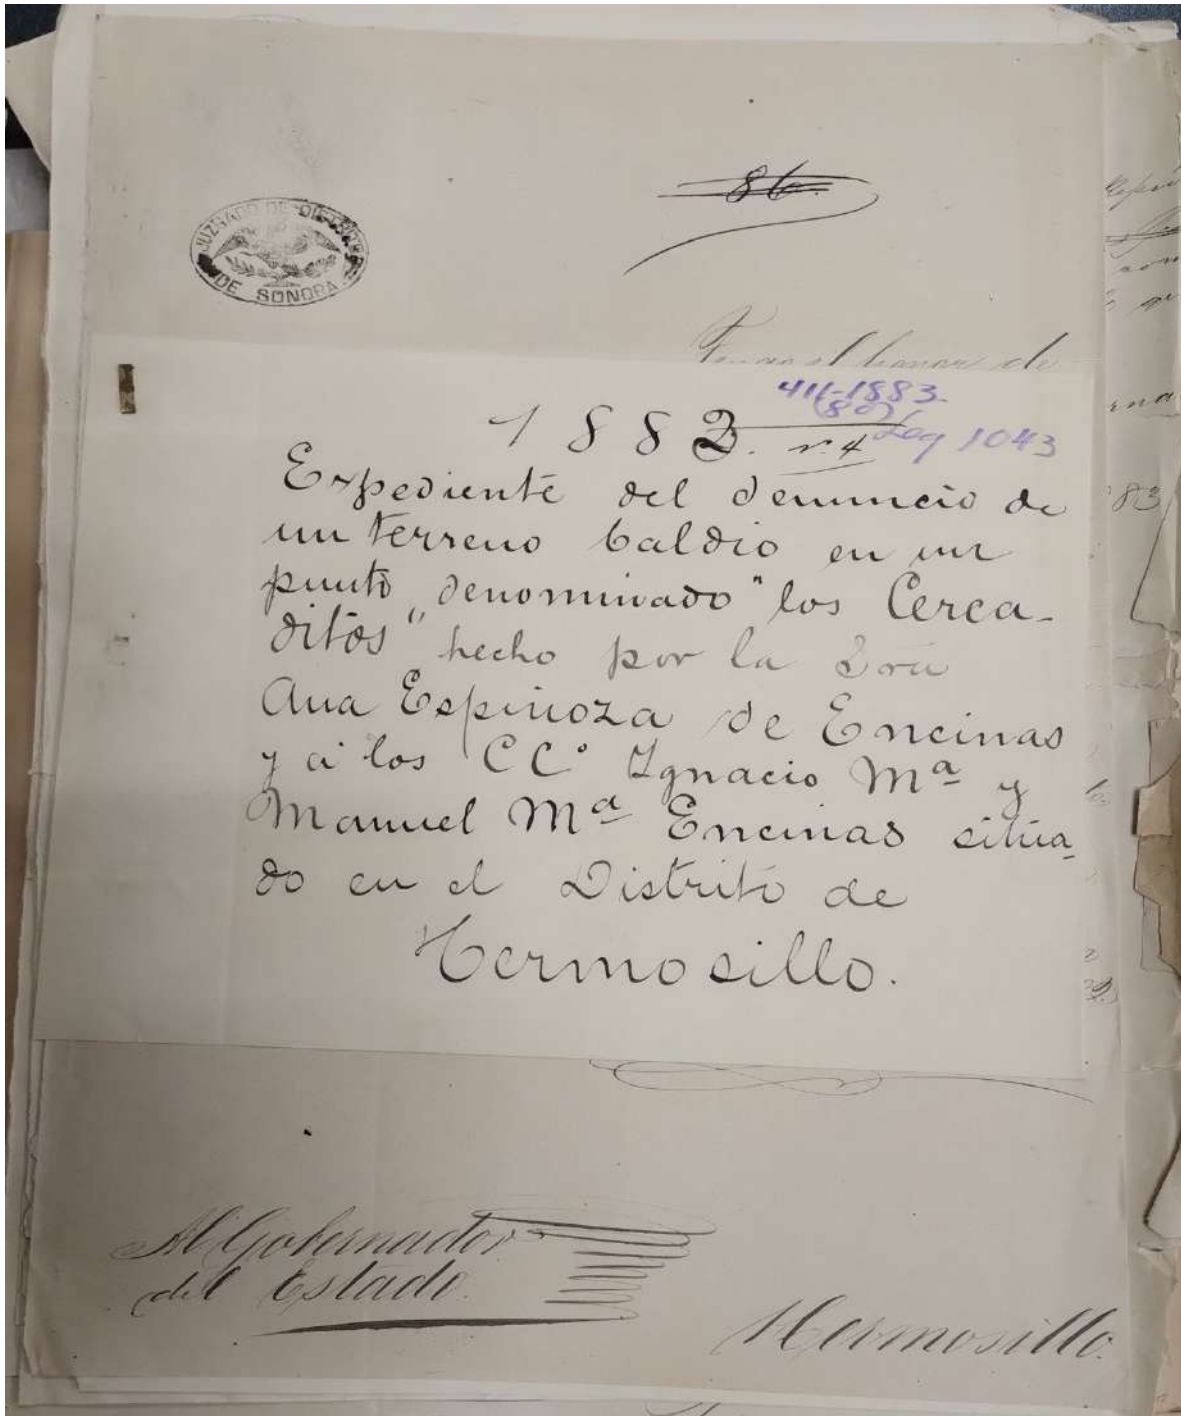 86.
JUZGADO DE DISTRITO
DE SONORA
Tengo el honor de
411-1883.
(80)
Leg 1043
1882. n. 4
Expediente del denuncio de
un terreno baldio en un
punto denominado "los Cerca-
ditos" hecho por la Sra
Ana Espinoza de Encinas
y á los CC. Ignacio Mª y
Manuel Mª Encinas situa-
do en el Distrito de
Hermosillo.
Al Gobernador
del Estado.
Hermosillo.
83